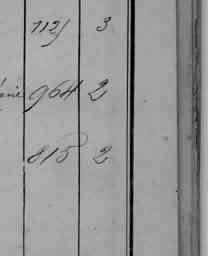 1125 3
964 2
815 2